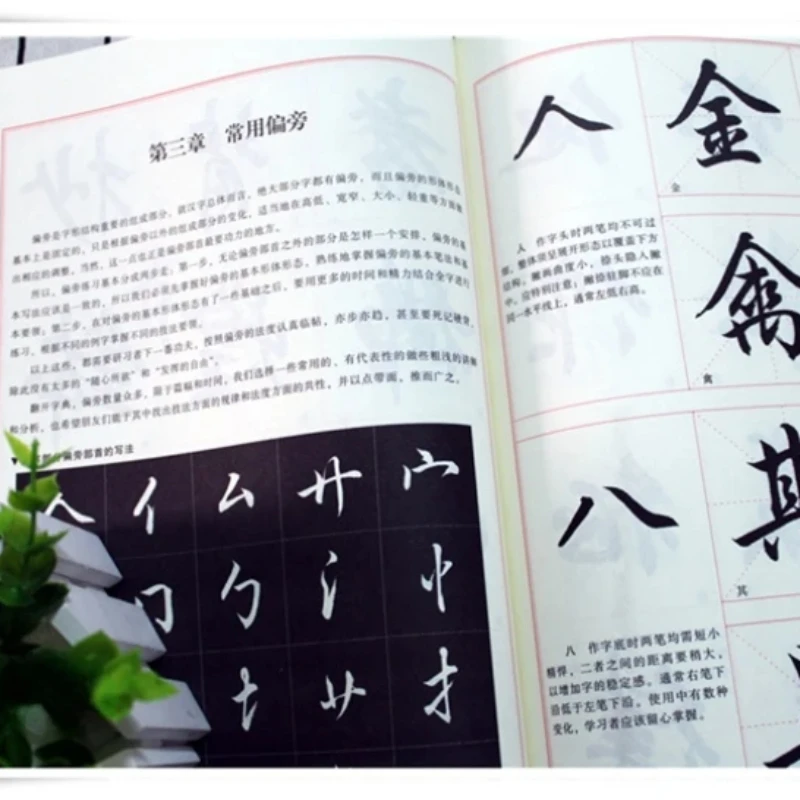 第三章 常用偏旁
偏旁是字形结构重要的组成部分，就汉字总体而言，绝大部分字都有偏旁，而且偏旁的形体形态
基本上是固定的，只是根据偏旁以外的组成部分的变化，适当地在高低、宽窄、大小、轻重等方面做
出相应的调整。当然，这一点也正是偏旁部首最要功力的地方。
所以，偏旁练习基本分成两步走：第一步，无论偏旁部首之外的部分是怎样一个安排，偏旁的基
本写法应该是一致的，所以我们必须先掌握好偏旁的基本形体形态，熟练地掌握偏旁的基本笔法和基
本要领；第二步，在对偏旁的基本形体形态有了一些基础之后，要用更多的时间和精力结合全字进行
练习，根据不同的例字掌握不同的技法要领。
以上这些，都需要研习者下一番功夫，按照偏旁的法度认真临帖，亦步亦趋，甚至要死记硬背，
除此没有太多的“随心所欲”和“发挥的自由”。
翻开字典，偏旁数量众多，限于篇幅和时间，我们选择一些常用的、有代表性的做些粗浅的讲解
和分析，也希望朋友们能于其中找出技法方面的规律和法度方面的共性，并以点带面，推而广之。
偏旁部首的写法
人 亻 厶 廾 宀
勹 氵 忄
扌
人
金
金
人 作字头时两笔均不可过
部，整体须呈展开形态以覆盖下方
结构。撇画曲度小，捺头隐入撇
中，应特别注意；撇捺驻脚不应在
同一水平线上，通常左低右高。
禽
禽
八
其
其
八 作字底时两笔均需短小
精悍，二者之间的距离要稍大，
以增加字的稳定感。通常右笔下
沿低于左笔下沿。使用中有数种
变化，学习者应该留心掌握。